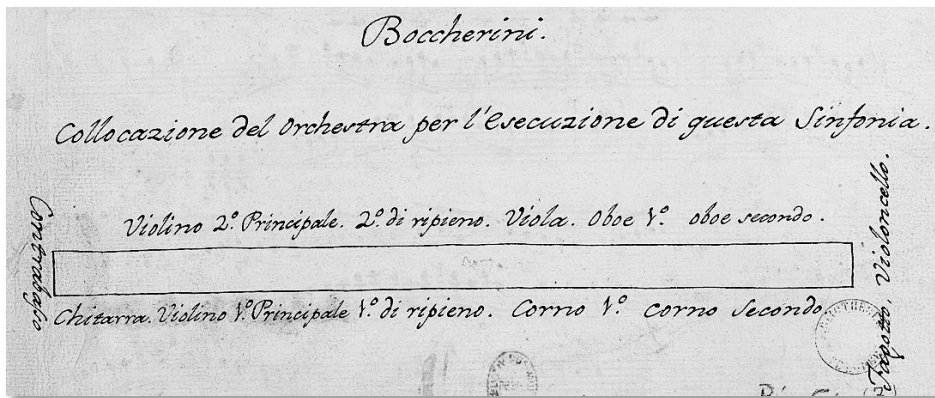 Boccherini.
Collocazione del Orchestra per l'Esecuzione di questa Sinfonia.
Violino 2º Principale. 2º di ripieno. Viola. Oboe 1º oboe secondo.
Contrabasso
Chitarra. Violino 1º Principale 1º di ripieno. Corno 1º Corno Secondo.
Fagotto. Violoncello.